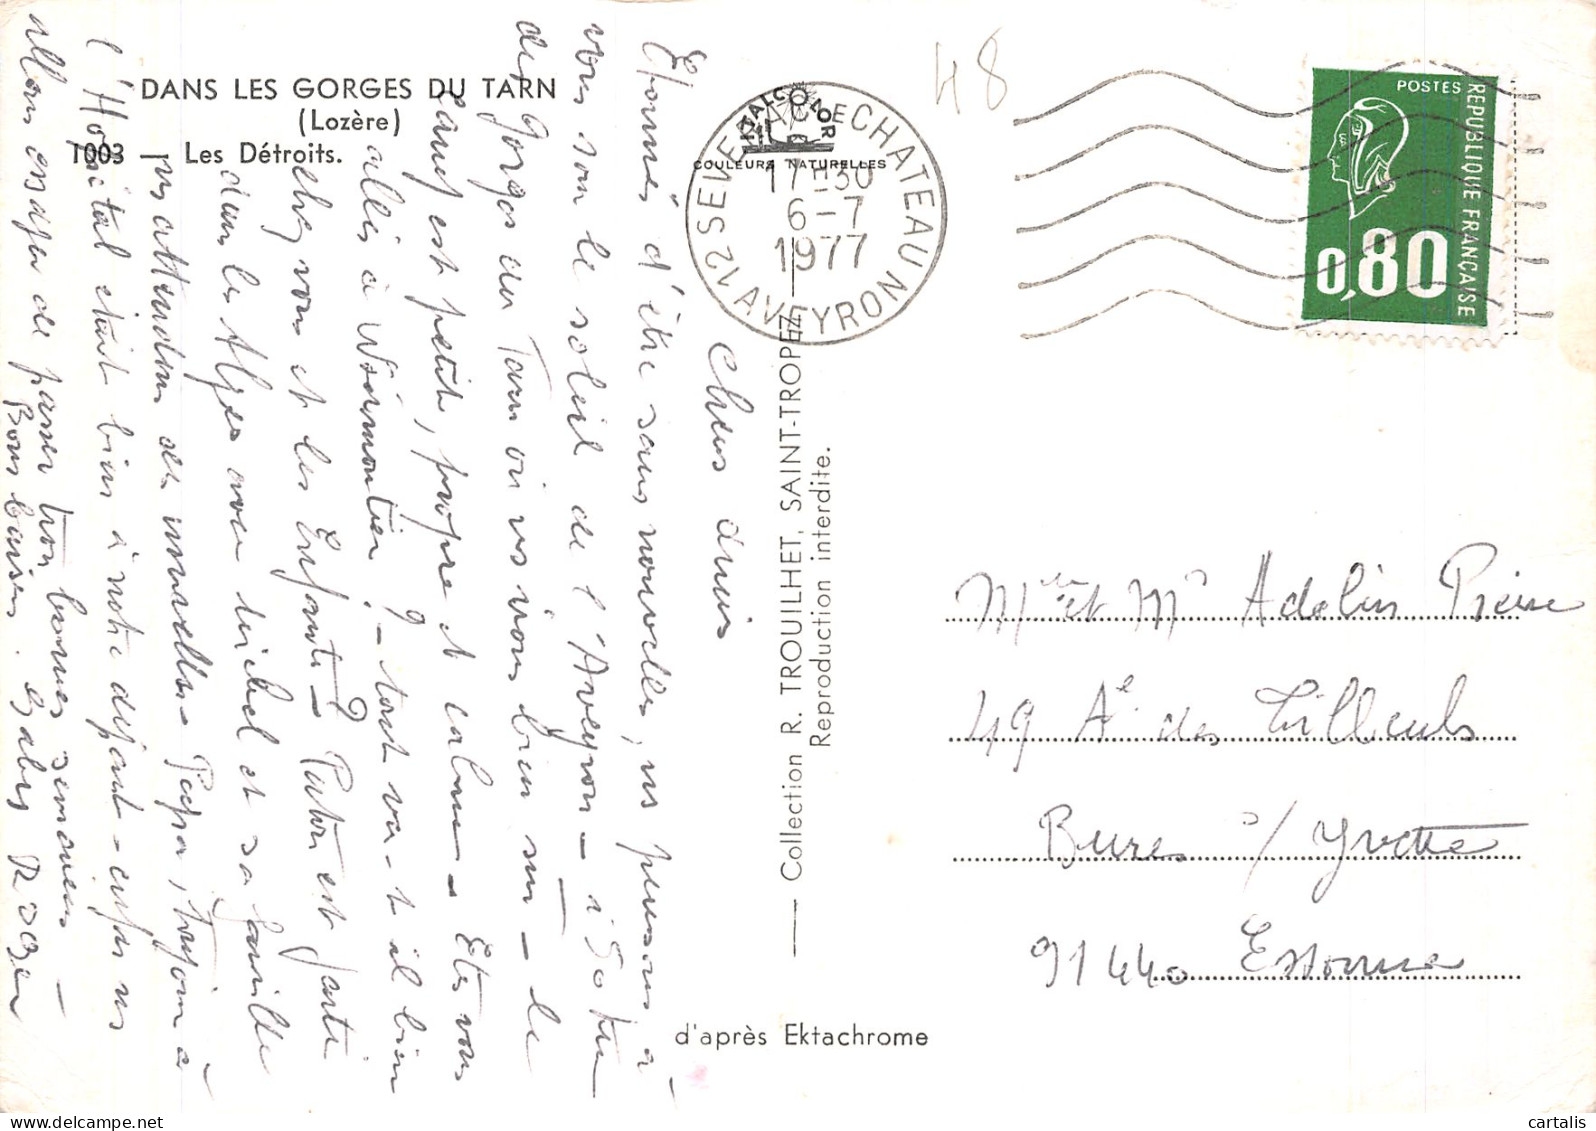 DANS LES GORGES DU TARN
(Lozère)
1003 — Les Détroits.
48
ITALCOLOR
COULEURS NATURELLES
12 SEVERAC LE CHATEAU
17-30
6-7
1977
AVEYRON
POSTES
REPUBLIQUE FRANÇAISE
0,80
Chers amis
Etonnés d'être sans nouvelles, ns pensons à
vous sous le soleil de l'Aveyron — à 50 km
des Gorges du Tarn où ns irons bien sûr — le
camp est petit, propre et calme — Etes vous
allés à Noirmoutier ? — tout va-t-il bien
chez vous et les Enfants — ? est partie
dans les Alpes avec Michel et sa famille
ns attendons des nouvelles — Papa, toujours à
l'Hôpital était bien à notre départ — enfin ns
allons essayer de passer trois bonnes semaines —
Bons baisers. Gaby ROger
— Collection R. TROUILHET, SAINT-TROPEZ —
Reproduction interdite.
d'après Ektachrome
Mme et Mr Adelin
49 Ae des Tilleuls
Bures s/ Yvette
91440 Essonne
cartalis